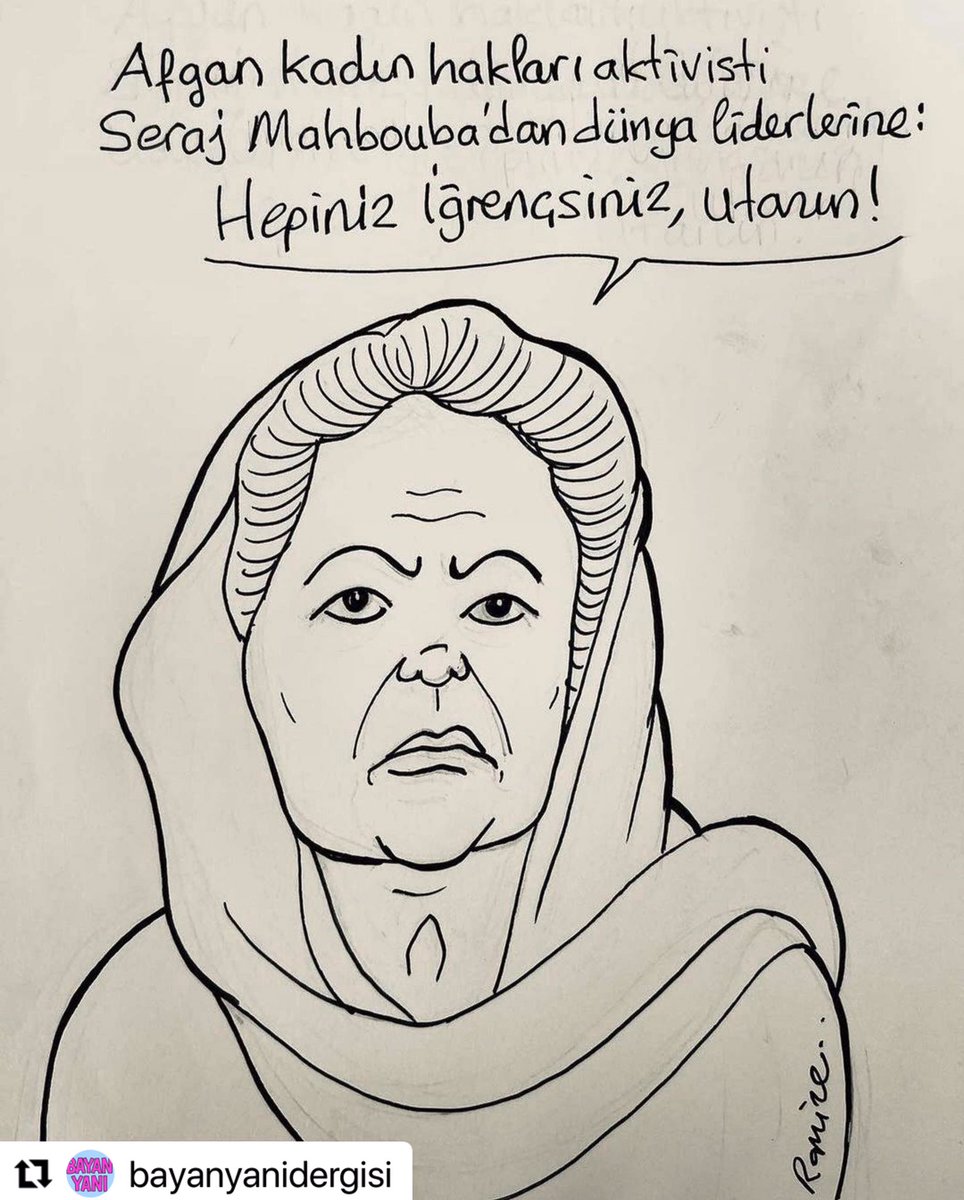 Afgan kadın hakları aktivisti
Seraj Mahbouba'dan dünya liderlerine:
Hepiniz İğrençsiniz, utanın!
Ramize...
BAYAN
YANI
bayanyanidergisi